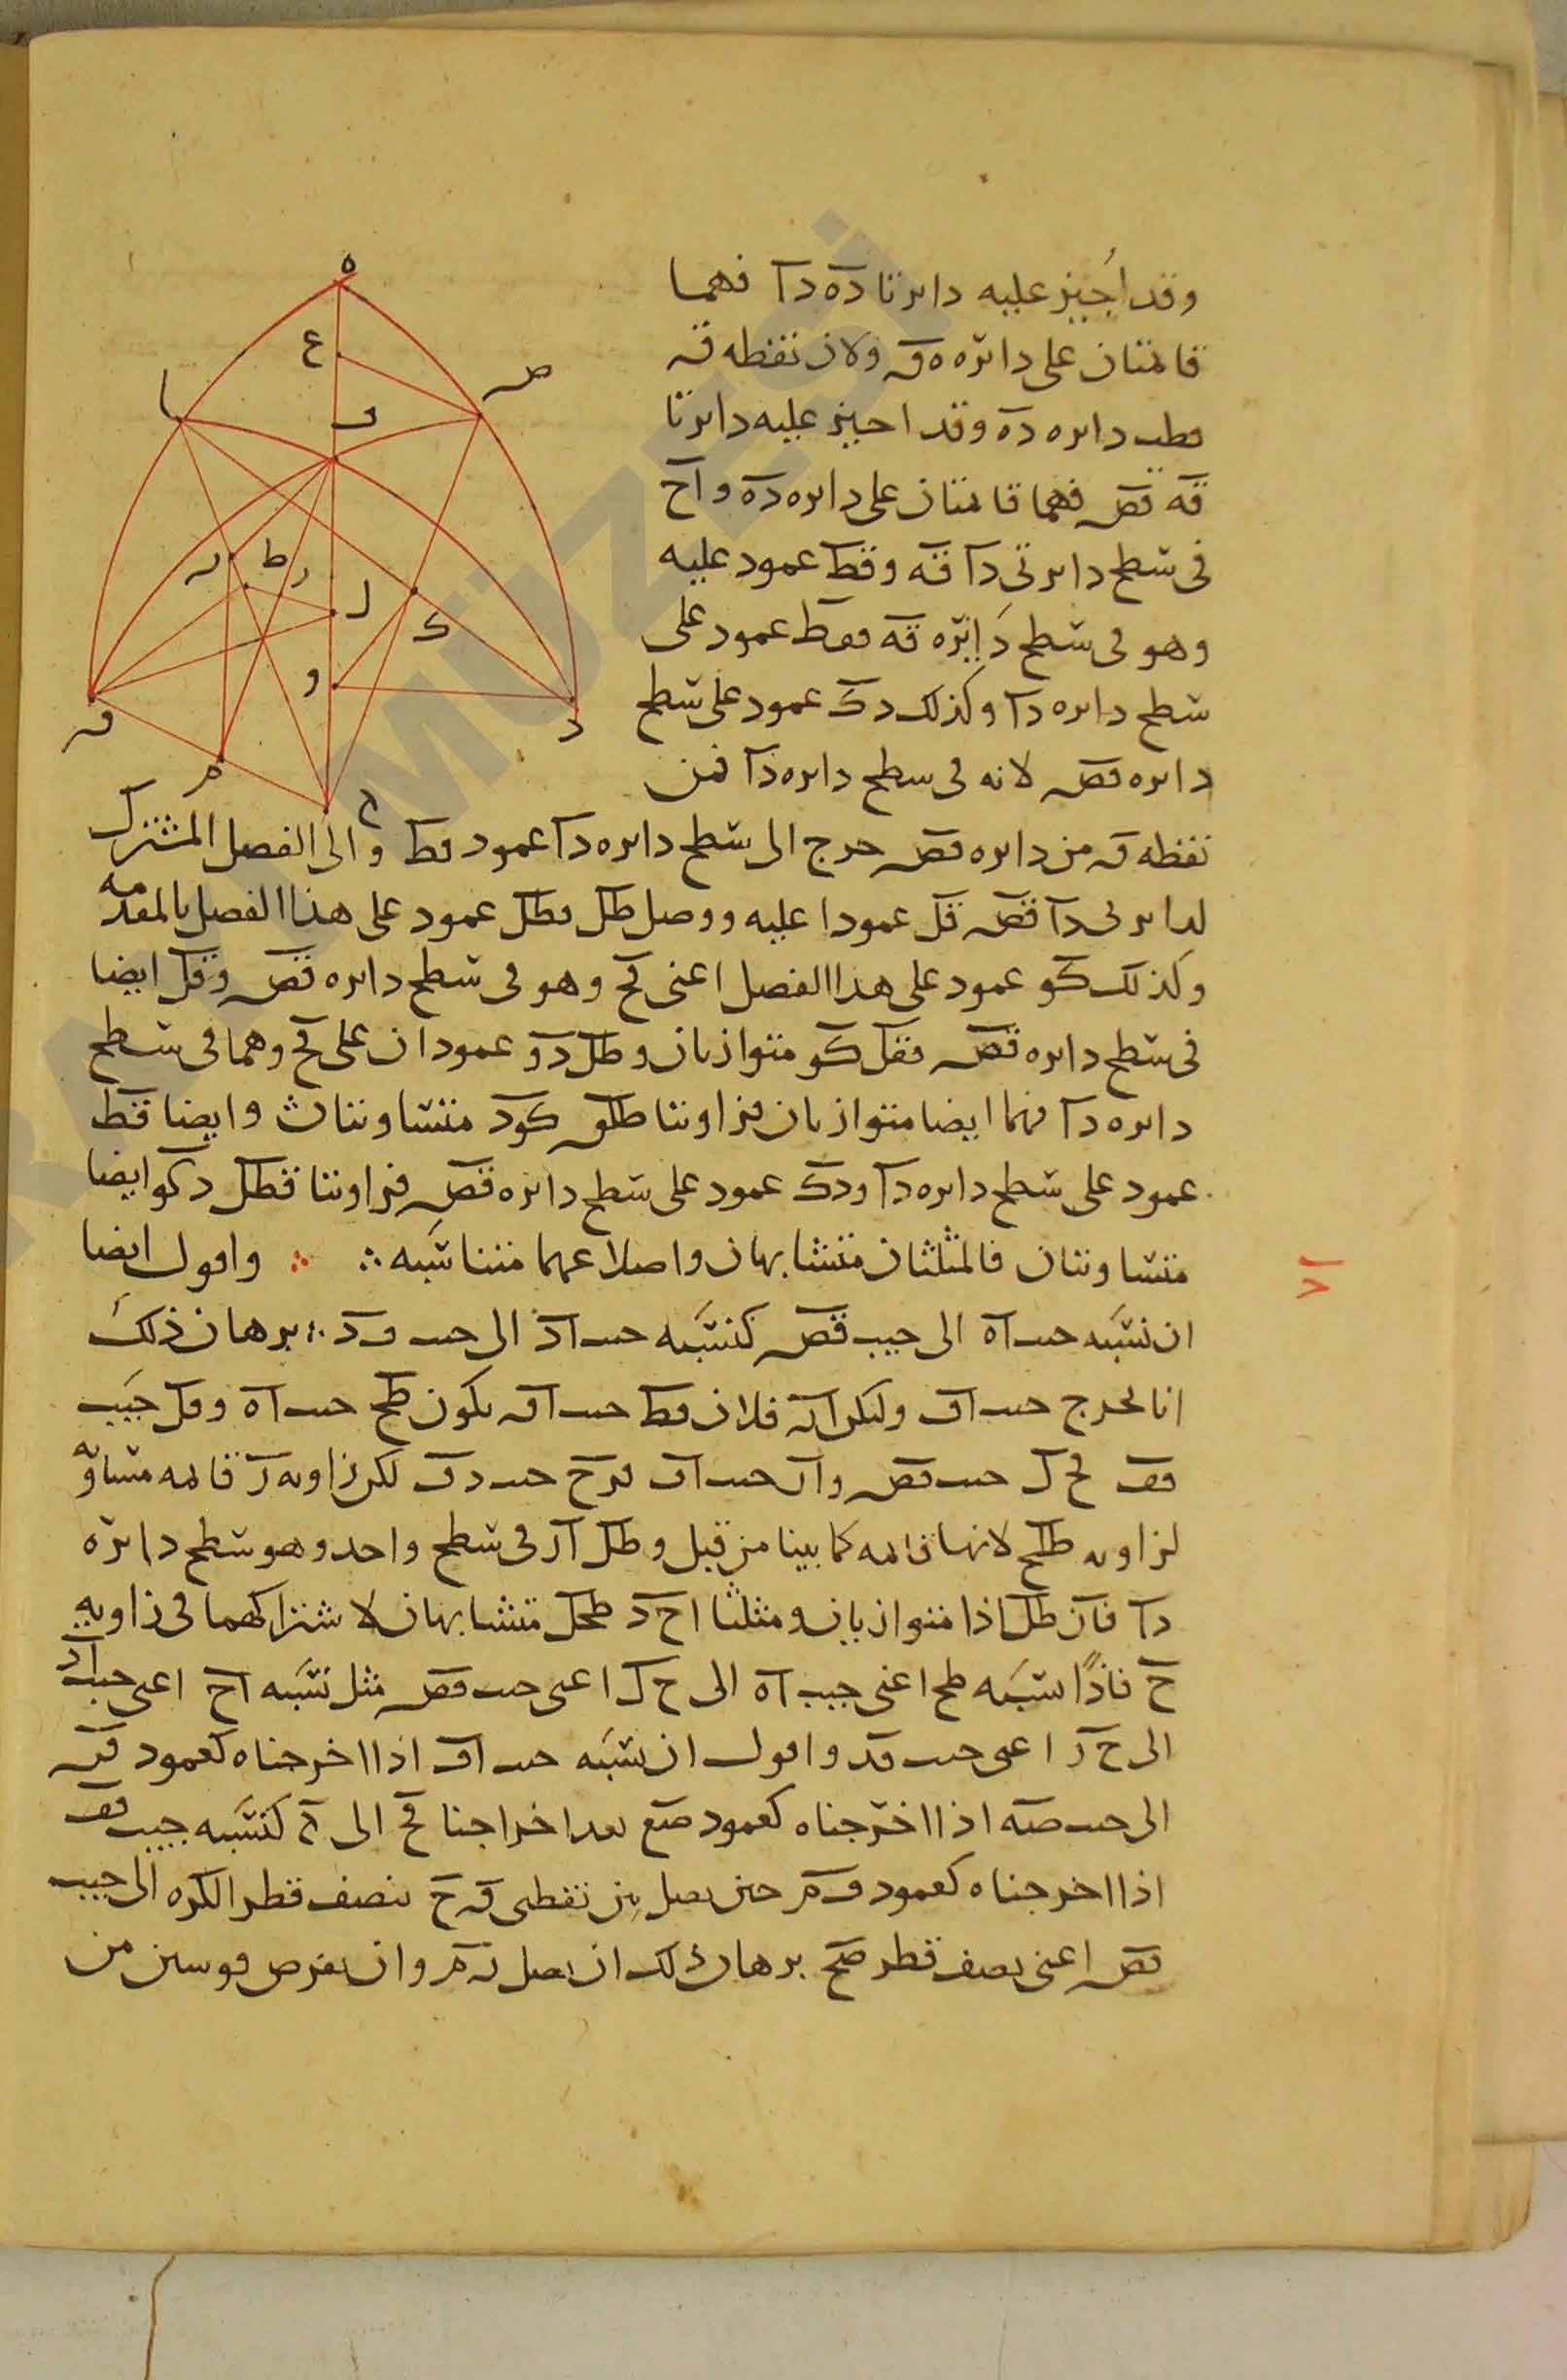 وقد اجيز عليه دايرتا ده دا فهما
قائمتان على دائره ه ق ولان نقطه ق
قطب دايره ده وقد اجيز عليه دايرتا
قه قص فهما قائمتان على دايره ده و اح
فى سطح دايرتى دا قه وقط عمود عليه
وهو فى سطح دائره قه فقط عمود على
سطح دايره دا وكذلك دك عمود على سطح
دايره قص لانه فى سطح دايره دا فمن
نقطه ق من دايره قص خرج الى سطح دايره دا عمود قط و الى الفصل المشترك
لدايرتى دا قص قل عمودا عليه ووصل طل فطل عمود على هذا الفصل بالمقدمه
وكذلك كو عمود على هذا الفصل اعنى فح وهو فى سطح دايره قص وقل ايضا
فى سطح دايره قص فقل كو متوازيان وطل دو عمودان على فح وهما فى سطح
دايره دا فهما ايضا متوازيان فزاويتا طلق كود متساويتان وايضا قط
عمود على سطح دايره دا ودك عمود على سطح دائره قص فزاويتا قطل دكو ايضا
متساويتان فالمثلثان متشابهان واضلاعهما متناسبه ∴ ∴ واقول ايضا
ان نسبه جيب اه الى جيب قص كنسبه جيب اد الى جيب فد ∴ برهان ذلك
انا نخرج جيب اف وليكن ار فلان قط جيب اق يكون طح جيب اه وقل جيب
قف فح ل جيب فص وار جيب اف فرح جيب دف لكن زاويه ر قائمه مساويه
لزاويه طلح لانها قائمه كما بينا من قبل وطل ار فى سطح واحد وهو سطح دائره
دا فار طل اذا متوازيان ومثلثا اح ر طحل متشابهان لاشتراكهما فى زاويه
ح فاذا نسبه طح اعنى جيب اه الى ح ل اعنى جيب فص مثل نسبه اح اعنى جيب اد
الى ح ر اعنى جيب فد واقول ان نسبه جيب اف اذا اخرجناه كعمود فن
الى جيب صه اذا اخرجناه كعمود صع بعد اخراجنا فح الى كنسبه جيب قف
اذا اخرجناه كعمود ف م حين يصل بين نقطتى ق ح بنصف قطر الكره الى جيب
فص اعنى نصف قطر صح برهان ذلك ان نصل ن م وان نفرض قوسين من
ه
ع
ص
ا
ف
ن
ط
ر
ل
ك
و
ق
د
م
ح